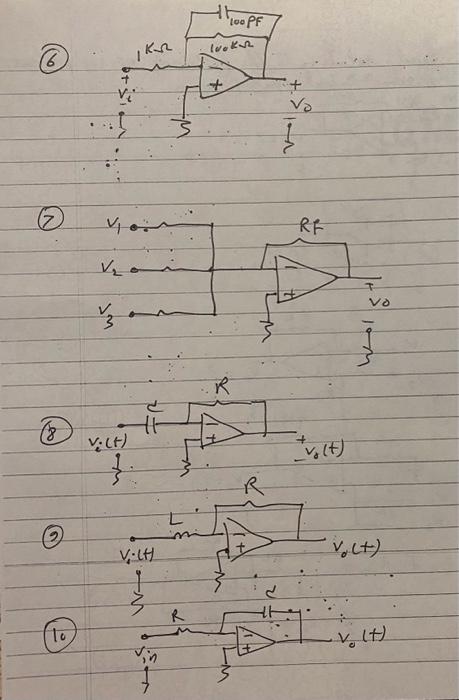 100PF
6 1KΩ 100KΩ
- +
+ Vi - + Vo -
7 V1 RF
V2 - +
V3 + Vo -
8 R
C - +
Vi(t) + - Vo(t)
9 R
L - +
Vi(t) Vo(t)
10 R C
- +
Vin Vo(t)